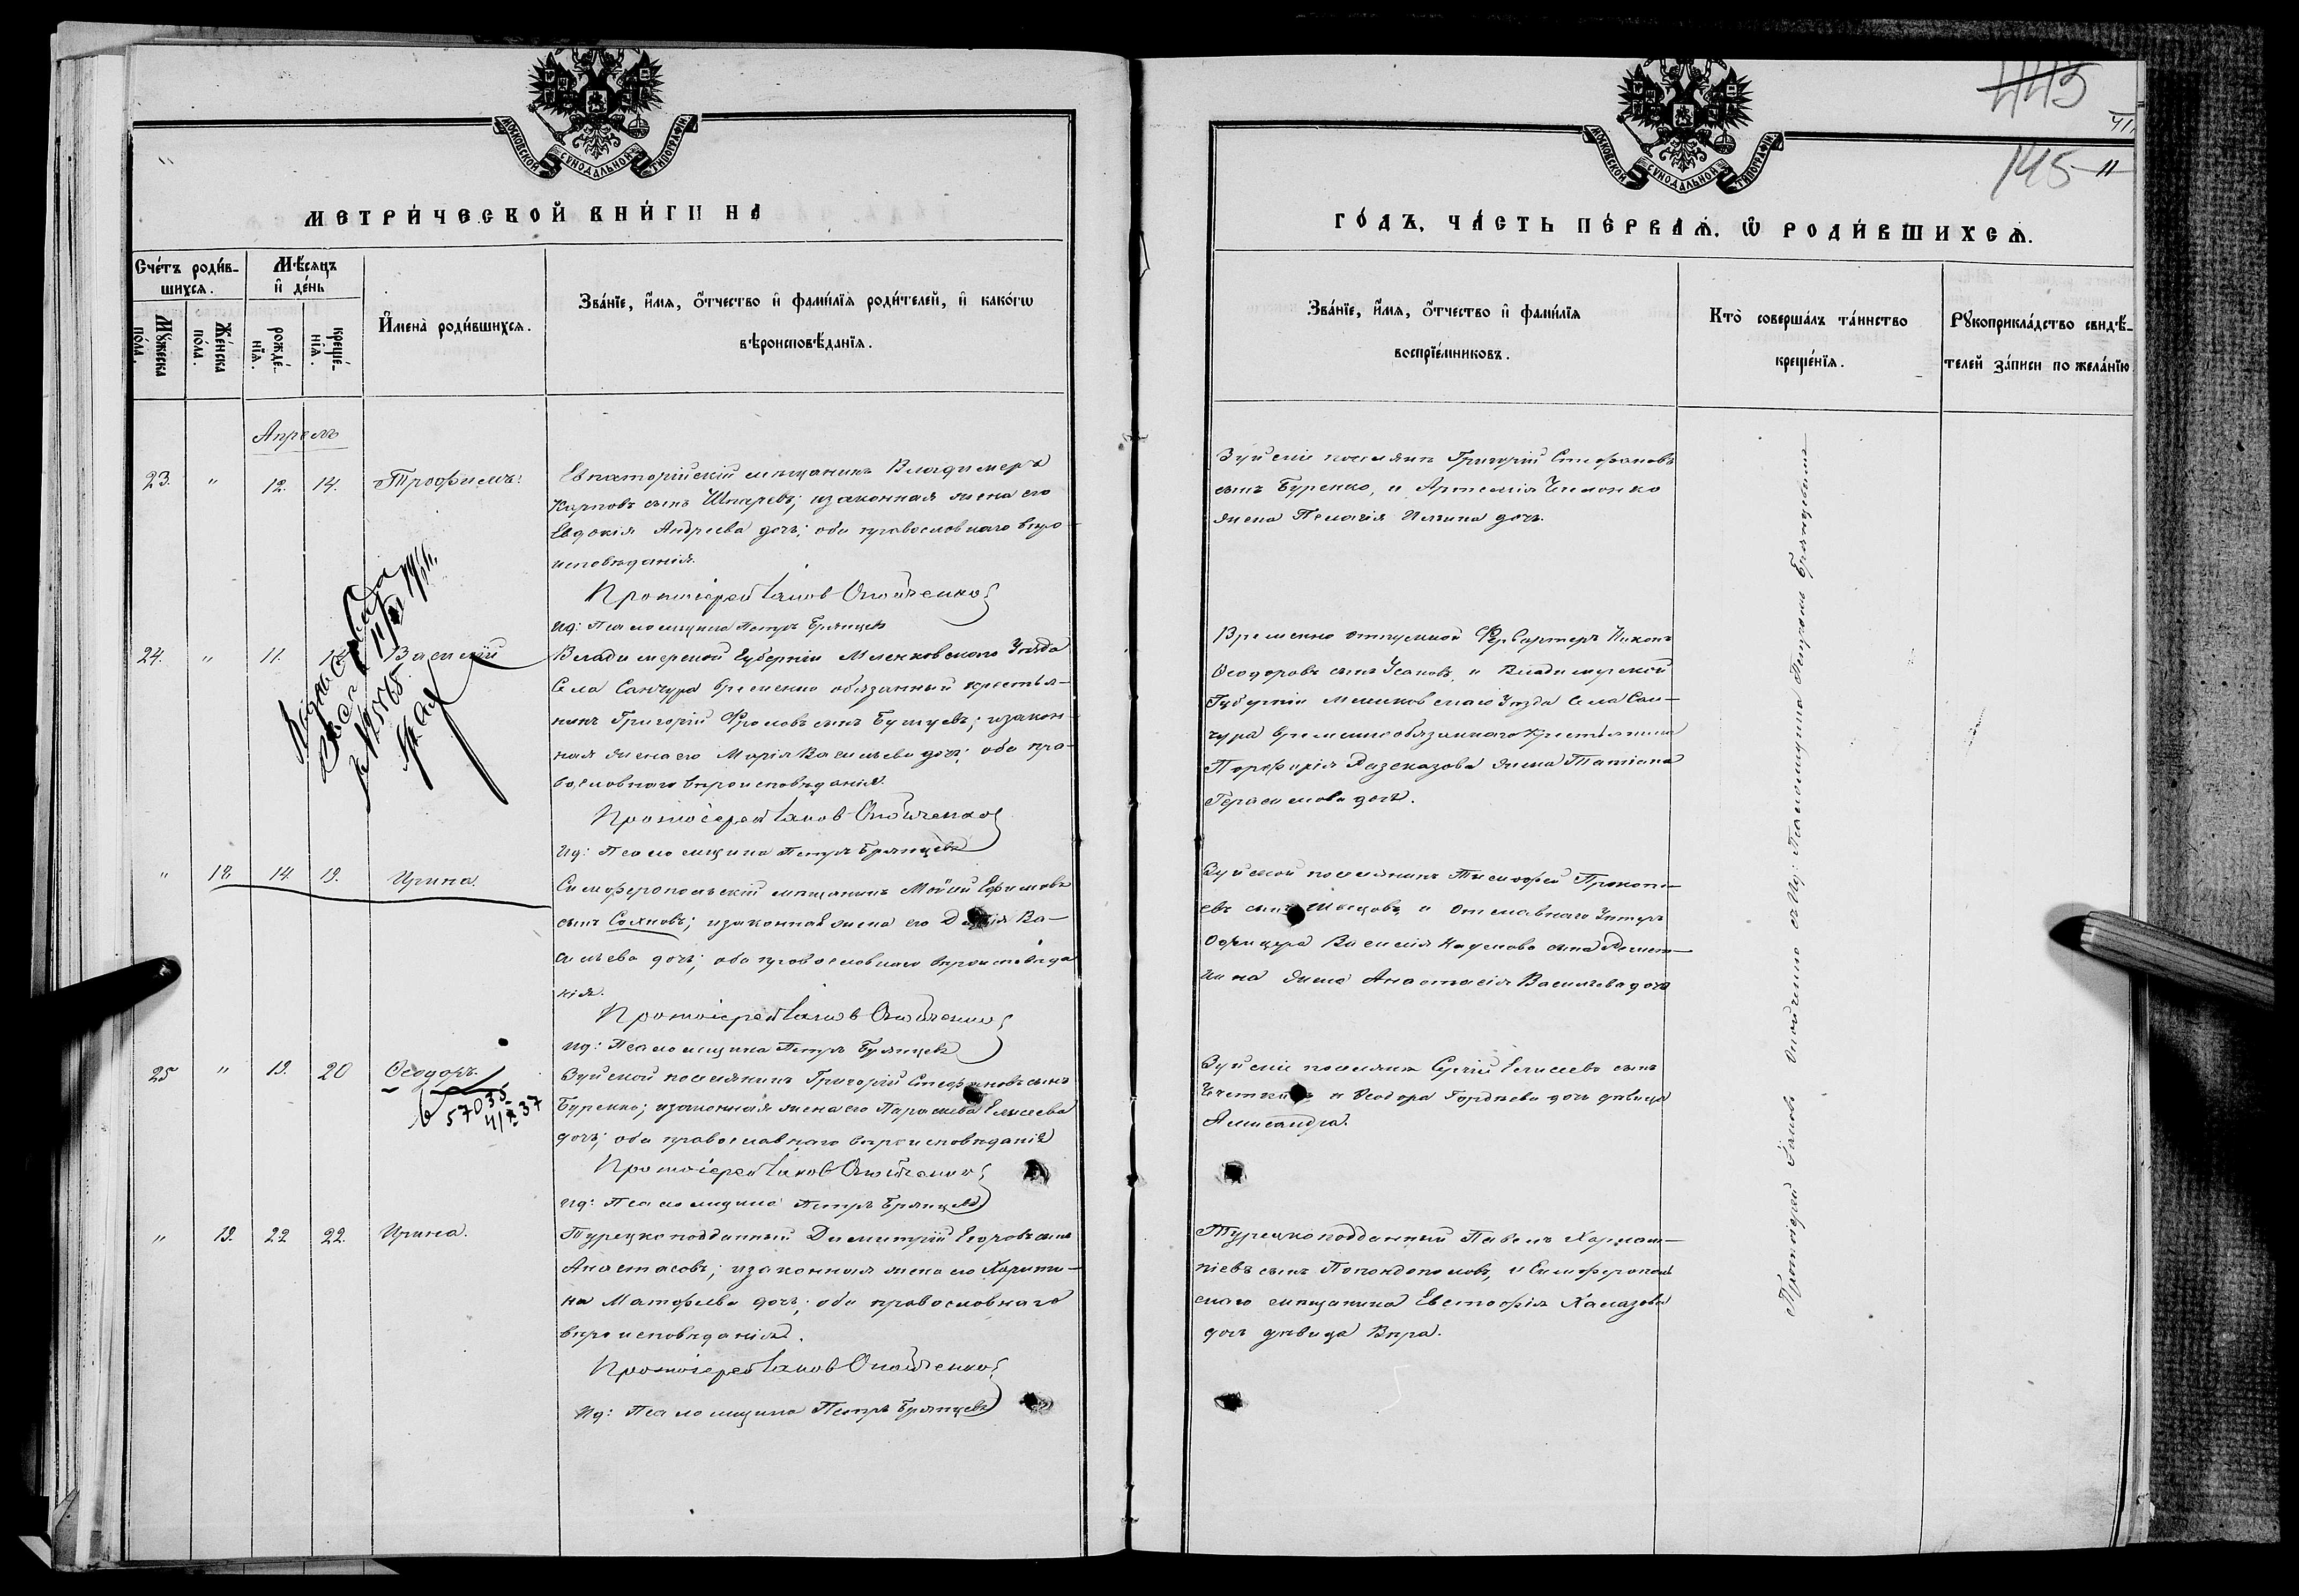 МОСКОВСКОЙ СУНОДАЛЬНОЙ ТИПОГРАФІИ
МЕТРИ́ЧЕСКОЙ КНИ́ГИ НА
Сче́тъ роди́в-
шихся.
Мѣ́сяцъ
и҆ де́нь
Му́жеска
по́ла.
Же́нска
по́ла.
рожде́-
нїя.
креще́-
нїя.
И҆мена̀ роди́вшихся.
Зва́нїе, и҆́мя, ѻ҆́тчество и҆ фами́лїя роди́телей, и҆ како́гѡ
вѣроисповѣ́данїя.
Апрель
23. " 12. 14. Трофимъ.
Евпаторійскій мѣщанинъ Владимеръ
Карповъ сынъ Шпаревъ; изаконная жена его
Евдокія Андреева дочь; оба православнаго вѣро-
исповѣданія.
Протоіерей Іаковъ Онойченко
ид: Псаломщика Петръ Брянцевъ
24. " 11. Василій
Владимерской Губерніи Меленковскаго Уѣзда
Села Санчура временно обязанный крестья-
нинъ Григорій Фроловъ сынъ; изакон-
ная жена его Марія Васильева дочь; оба пра-
вославнаго вѣроисповѣданія.
Протоіерей Іаковъ Онойченко
Ид: Псаломщика Петръ Брянцевъ
" 18 14. 19. Ирина.
Симферопольскій мѣщанинъ Мойсій Ефимовъ
сынъ Саяновъ; изаконная жена его Ва-
сильева дочь; оба православнаго вѣроисповѣда
нія.
Протоіерей Іаковъ Онойченко
ид: Псаломщика Петръ Брянцевъ
25 " 19. 20 Ѳеодоръ.
57035
4/X 37
Зуйской поселянинъ Григорій Стефановъ сынъ
Буренко; изаконная жена его Параскева Елисеева
дочь; оба православнаго вѣроисповѣданія
Протоіерей Іаковъ Онойченко
ид: Псаломщика Петръ Брянцевъ
" 19. 22 22. Ирина.
Турецкоподданный Димитрій Егоровъ сынъ
Анастасовъ; изаконная жена его Харити-
на Матфеева дочь; оба православнаго
вѣроисповѣданія.
Протоіерей Іаковъ Онойченко
Ид: Псаломщика Петръ Брянцевъ
445
41.
145
МОСКОВСКОЙ СУНОДАЛЬНОЙ ТИПОГРАФІИ
ГО́ДЪ, ЧА́СТЬ ПЕ́РВАЯ, Ѡ҆ РОДИ́ВШИХСЯ.
Зва́нїе, и҆́мя, ѻ҆́тчество и҆ фами́лїя
воспрїе́мниковъ.
Кто̀ соверша́лъ та́инство
креще́нїя.
Рꙋкоприкла́дство свидѣ́-
телей за́писи по жела́нїю
Зуйскіе поселянинъ Григорій Стефановъ
сынъ Буренко, и
жена Пелагія Ильина дочь.
Временно отпускной Никонъ
Ѳеодоровъ сынъ Усановъ, и Владимерской
Губерніи Меленковскаго Уѣзда Села Сан-
чура временнообязаннаго крестьянина
Порфирія Разсказова жена Татіана
Герасимова дочь.
Зуйской поселянинъ Тимофей Прокопі-
евъ сынъ Швецовъ, и Отставнаго Унтеръ
Офицера Василія Наумова сына
жена Анастасія Васильева дочь
Зуйскіе поселяне Сергій Елисеевъ сынъ
и Ѳеодора Гордѣева дочь дѣвица
Александра.
Турецкоподданный Павелъ Харлам-
піевъ сынъ Попондополовъ, и Симферополь
скаго мѣщанина Евстафія Халазова
дочь дѣвица Вѣра.
Протоіерей Іаковъ Онойченко съ Ид: Псаломщика Петромъ Брянцевымъ